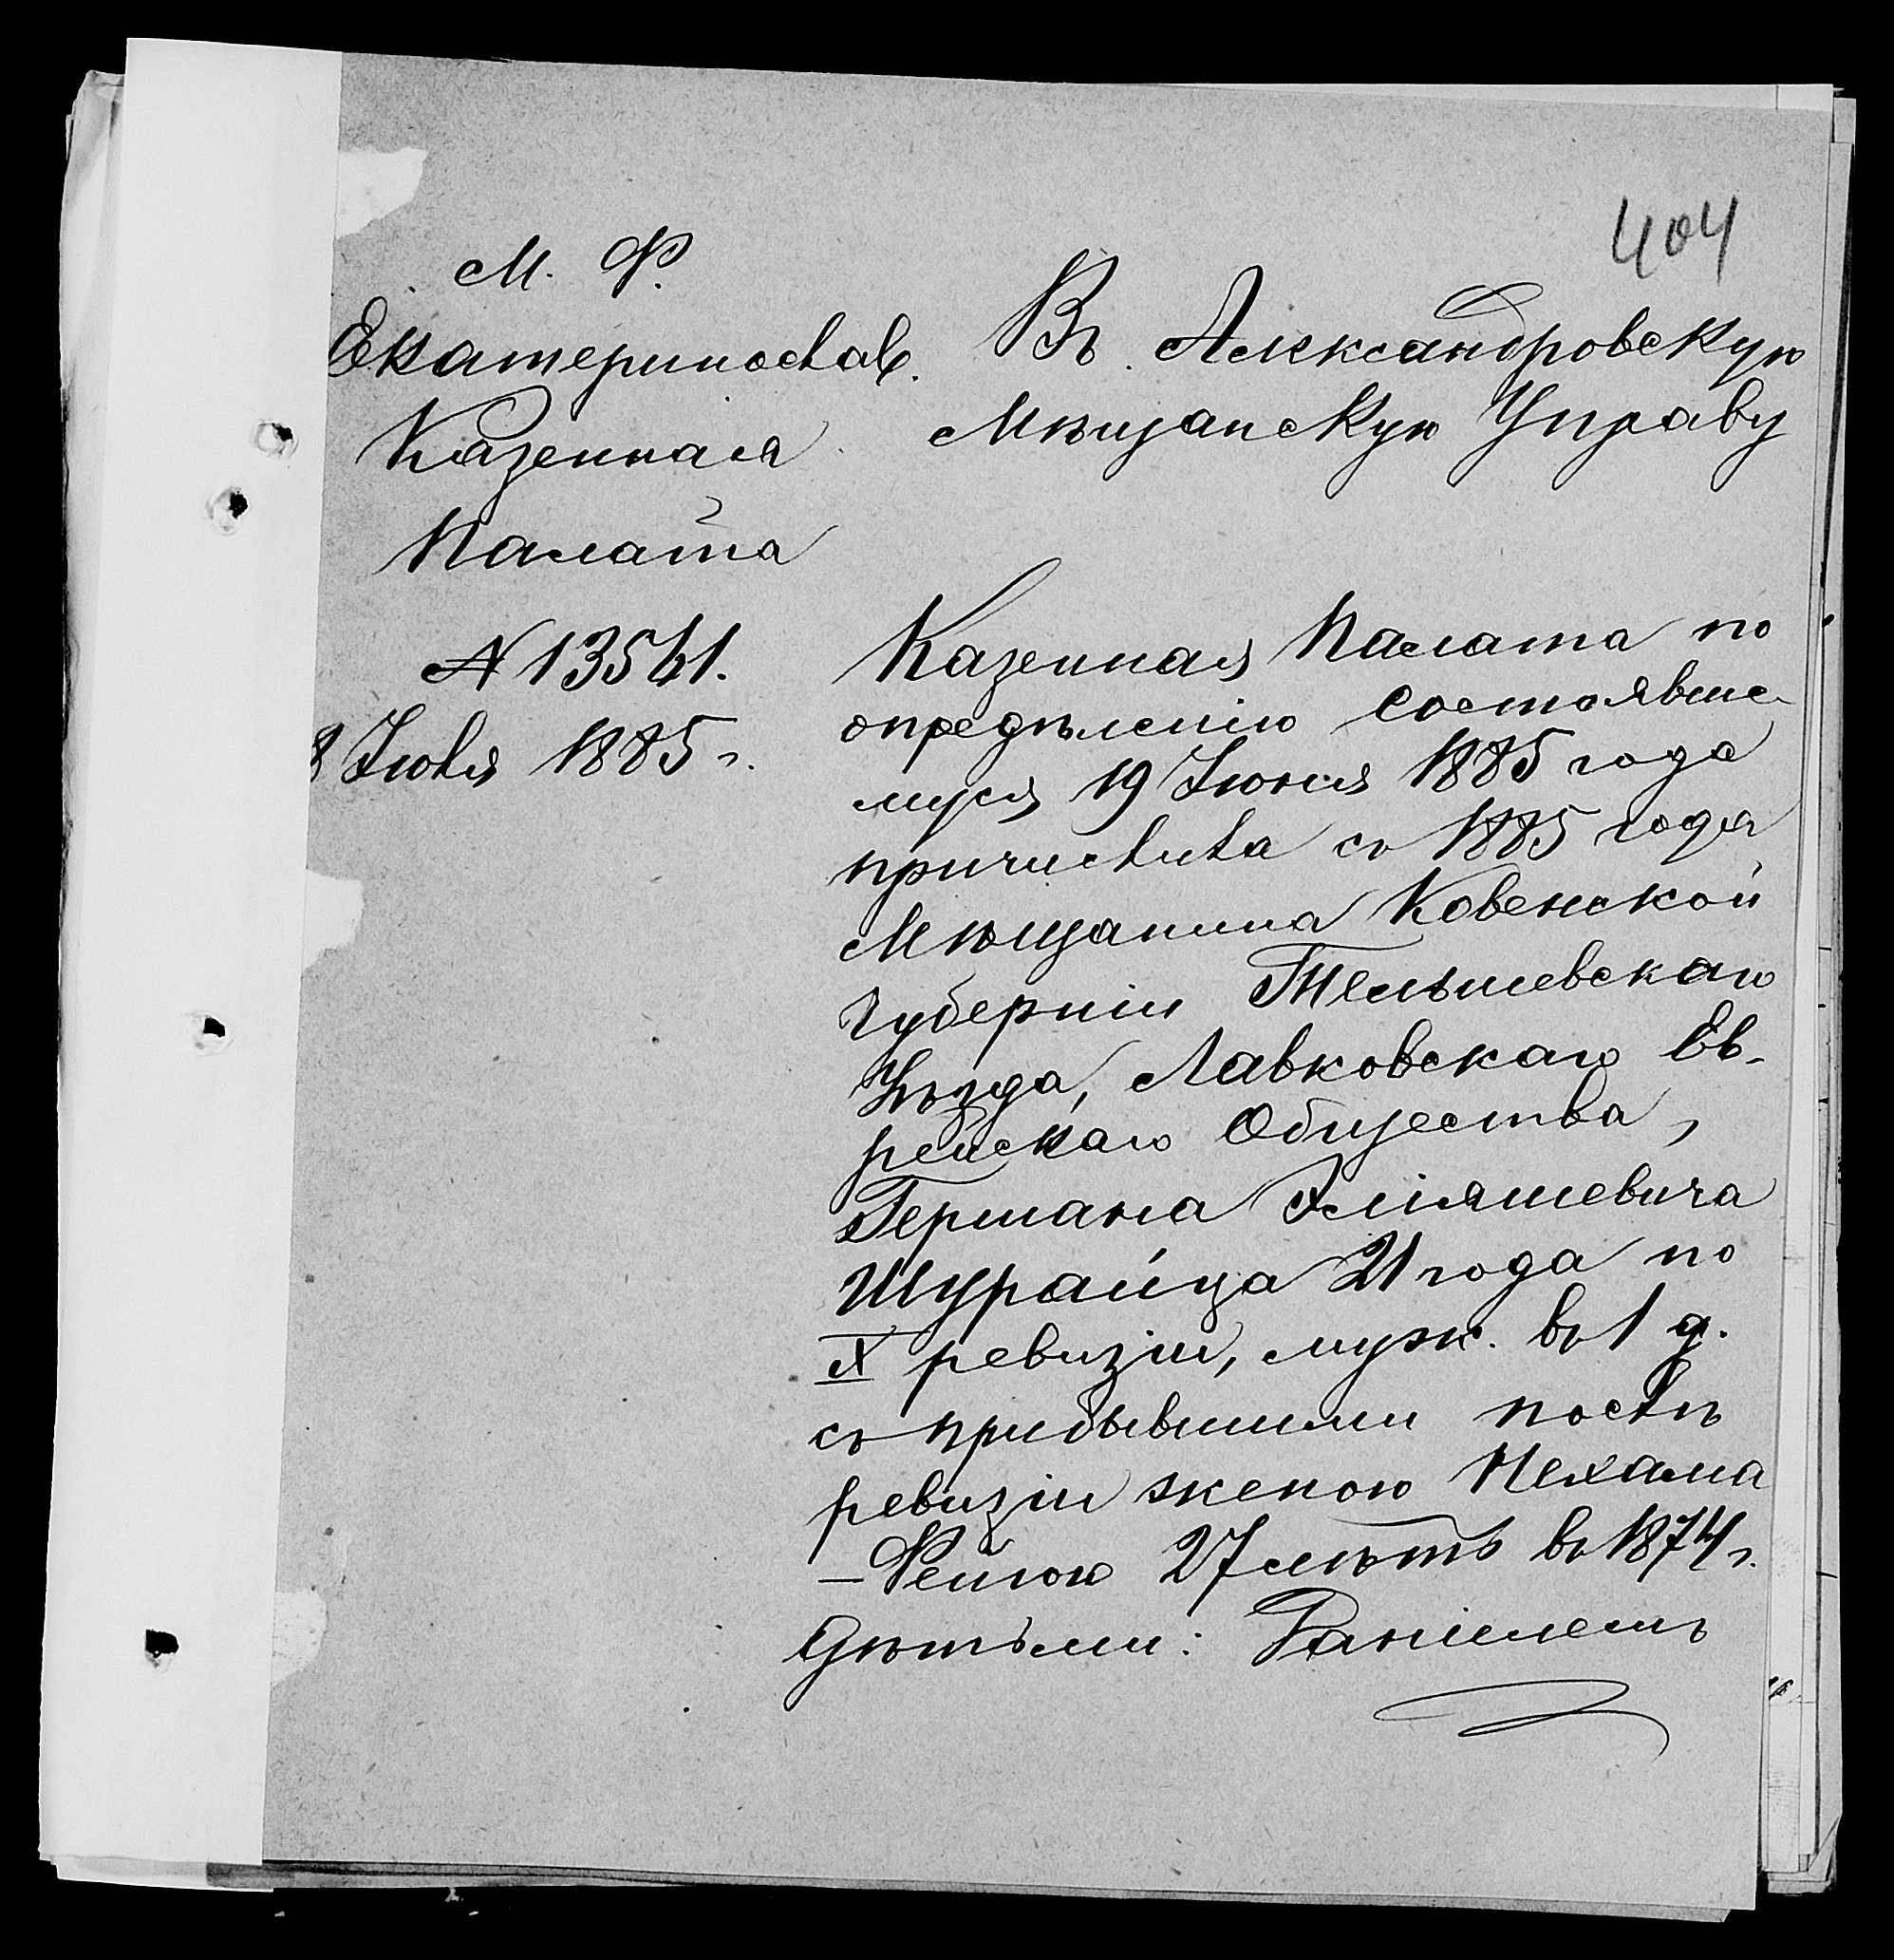 404
М. Ф.
Екатеринослав.
Казенная
Палата
№ 13561.
8 Июля 1885 г.
Въ Александровскую
Мѣщанскую Управу
Казенная Палата по
опредѣленію состоявше-
муся 19 Июня 1885 года
причислила съ 1885 года
Мѣщанина Ковенской
губерніи Тельшевскаго
Уѣзда, Лавковскаго Ев-
рейскаго Общества,
Германа Эліяшевича
Шурайца 21 года по
X ревизіи, муж. въ 1 д.
съ прибывшими послѣ
ревизіи женою Нехама
-Фейгою 27 лѣтъ въ 1874 г.
дѣтьми: Даніилемъ